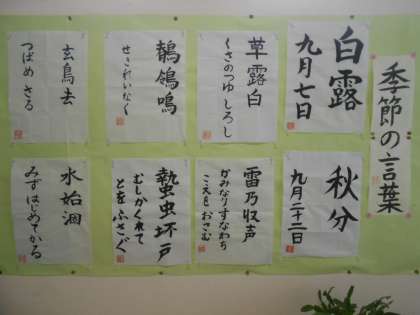 季節の言葉
白露
九月七日
草露白
くさのつゆ しろし
鶺鴒鳴
せきれいなく
玄鳥去
つばめ さる
秋分
九月二十二日
雷乃収声
かみなりすなわち
こえをおさむ
蟄虫坏戸
むしかくれて
とをふさぐ
水始涸
みず はじめてかる